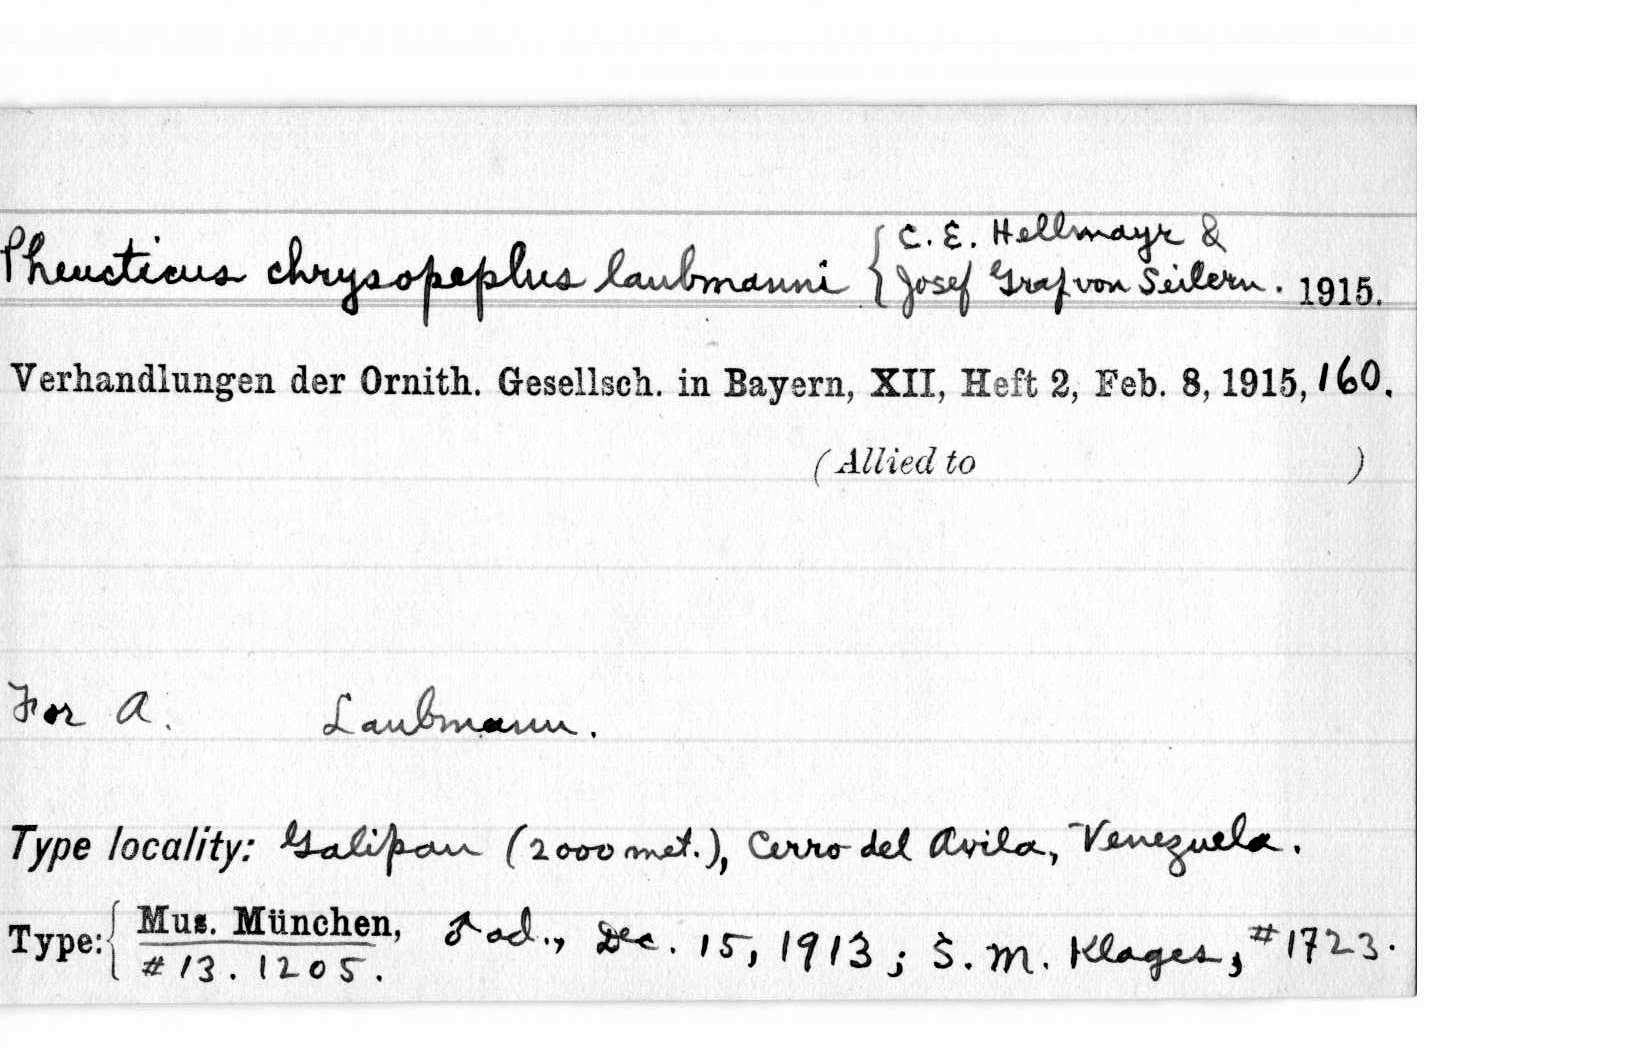 Pheucticus chrysopeplus laubmanni { C. E. Hellmayr &
Josef Graf von Seilern. 1915.
Verhandlungen der Ornith. Gesellsch. in Bayern, XII, Heft 2, Feb. 8, 1915, 160.
(Allied to )
For A. Laubmann.
Type locality: Galipan (2000 met.), Cerro del Avila, Venezuela.
Type: { Mus. München, ♂ ad., Dec. 15, 1913; S. M. Klages, #1723.
#13.1205.